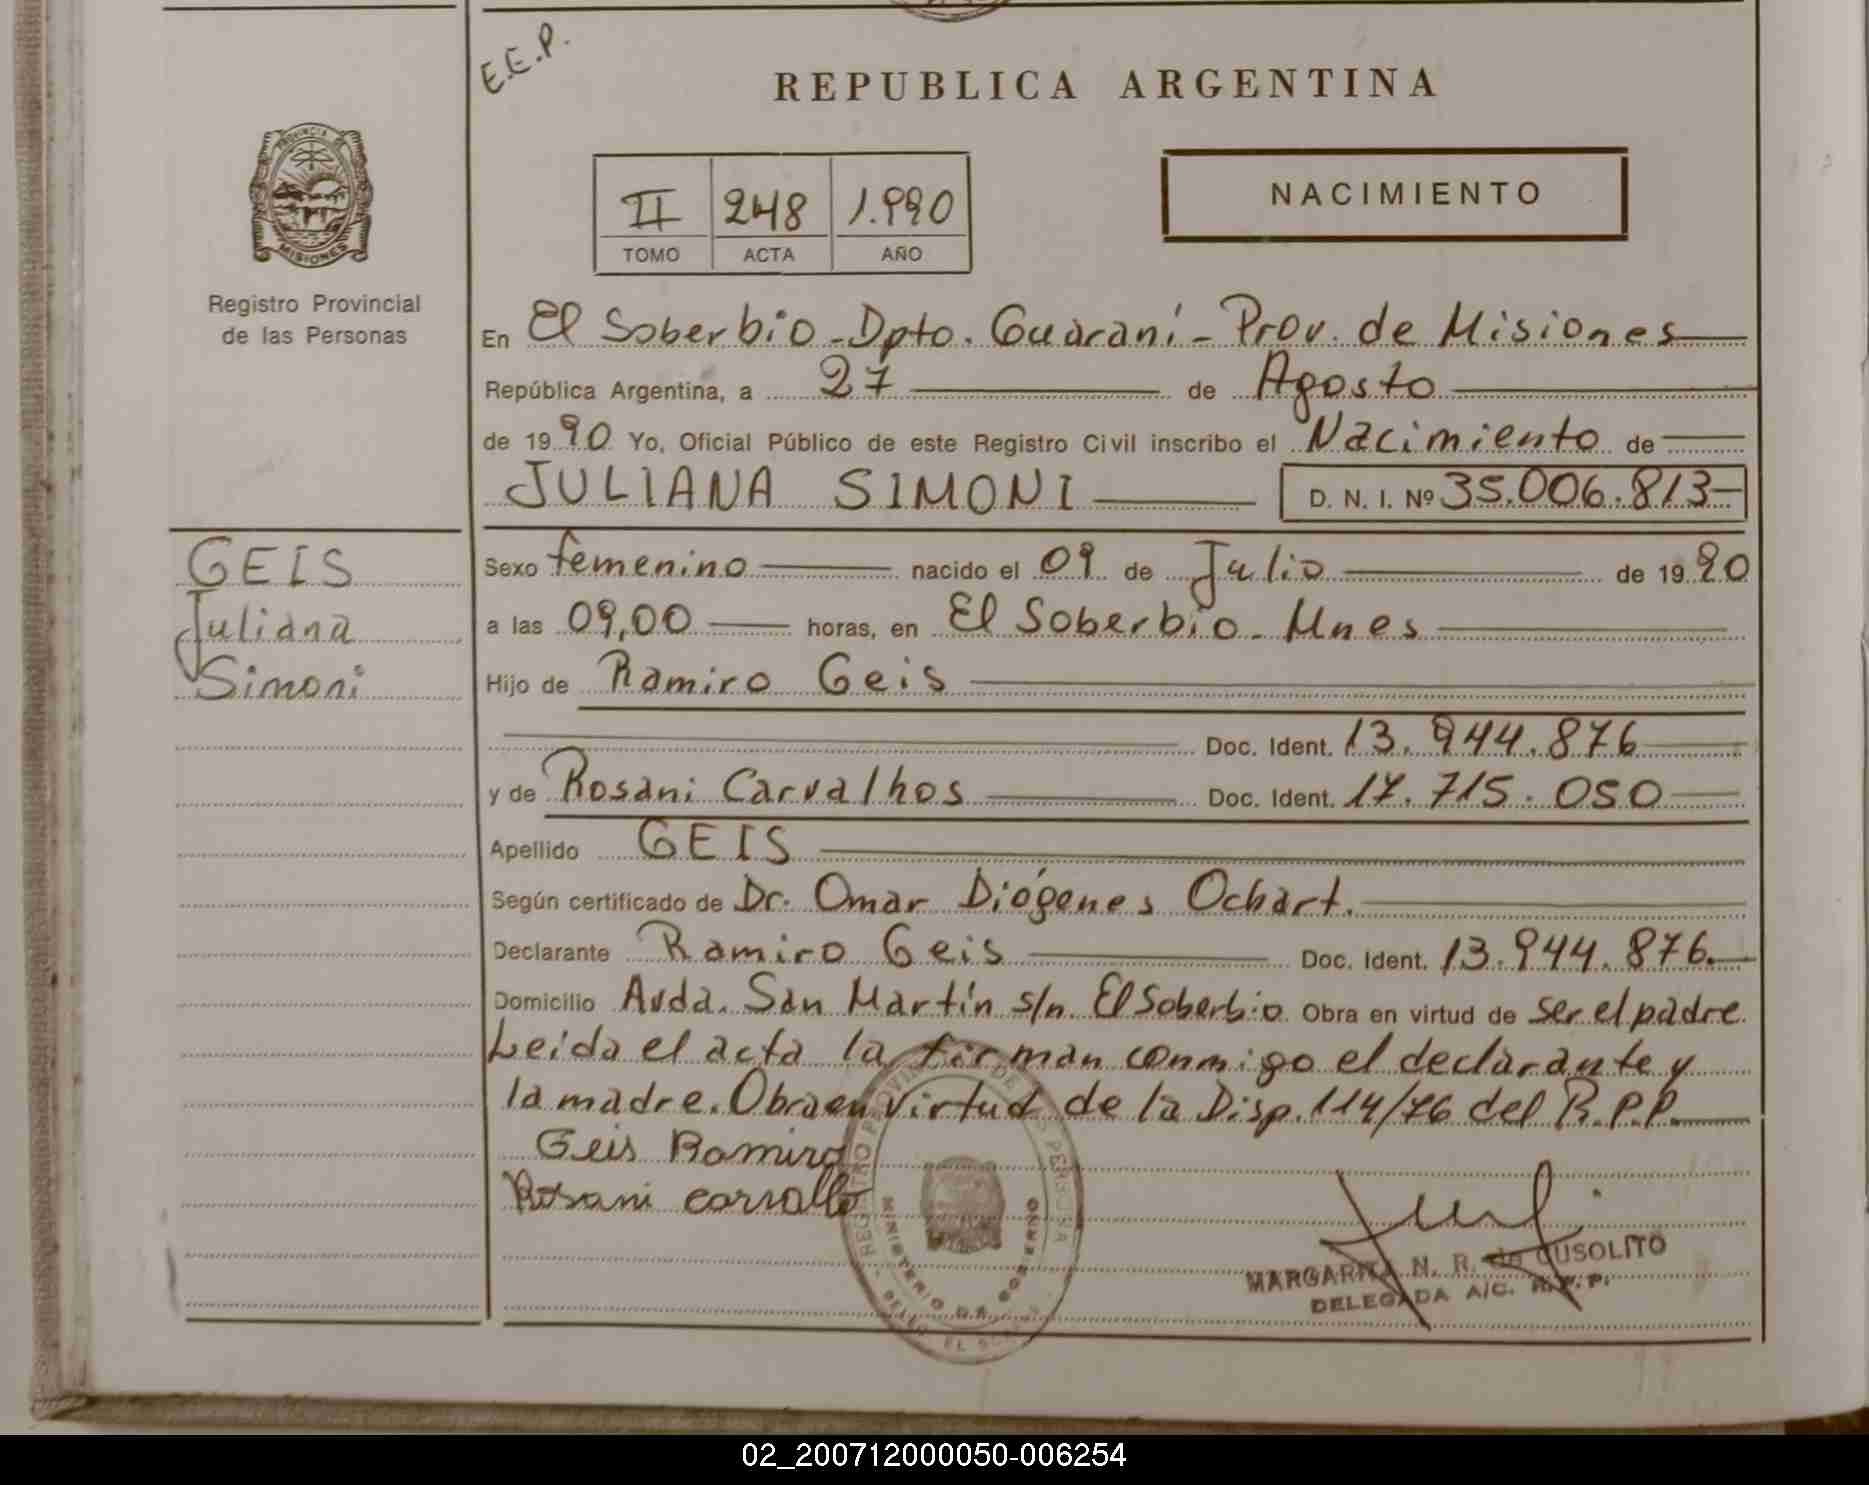 E.E.P.
REPUBLICA ARGENTINA
II 248 1.990
TOMO ACTA AÑO
NACIMIENTO
PROVINCIA DE
MISIONES
Registro Provincial
de las Personas
En El Soberbio - Dpto. Guaraní - Prov. de Misiones
República Argentina, a 27 de Agosto
de 1990 Yo, Oficial Público de este Registro Civil inscribo el Nacimiento de
JULIANA SIMONI D. N. I. Nº 35.006.813-
GEIS
Juliana
Simoni
Sexo femenino nacido el 09 de Julio de 1990
a las 09,00 horas, en El Soberbio - Mnes
Hijo de Ramiro Geis
Doc. Ident. 13.944.876
y de Rosani Carvalhos Doc. Ident. 17.715.050
Apellido GEIS
Según certificado de Dr. Omar Diógenes Ochart.
Declarante Ramiro Geis Doc. Ident. 13.944.876.
Domicilio Avda. San Martín s/n. El Soberbio Obra en virtud de ser el padre
Leida el acta la firman conmigo el declarante y
la madre. Obra en virtud de la Disp. 114/76 del R.P.P.
Geis Ramiro
Rosani
MINISTERIO DE GOBIERNO
MARGARITA N. R. de CUSOLITO
DELEGADA A/C. R.P.P.
02_200712000050-006254